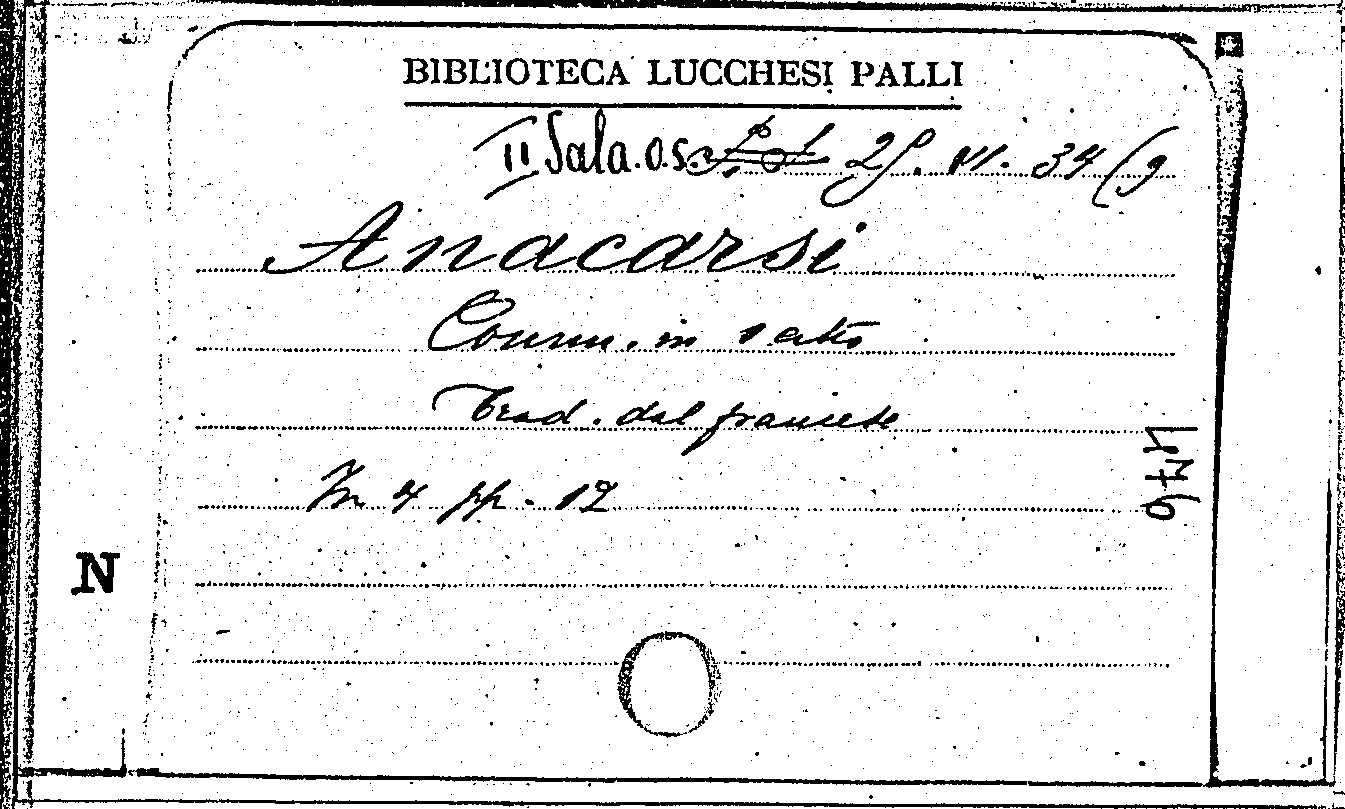 BIBLIOTECA LUCCHESI PALLI
II Sala. O.S. 25. VI. 34 (9
Anacarsi
Comm. in 1 atto
Trad. dal francese
In 4 pp. 12
N